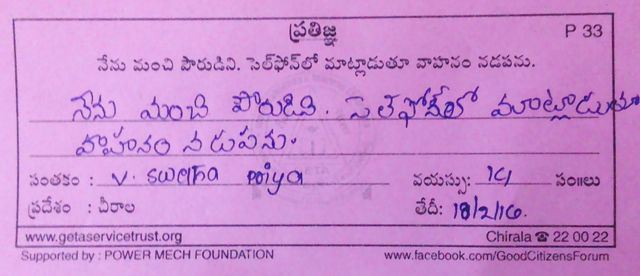 ప్రతిజ్ఞ P 33
నేను మంచి పౌరుడిని. సెల్‌ఫోన్‌లో మాట్లాడుతూ వాహనం నడపను.
నేను మంచి పౌరుడిని. సెల్‌ఫోన్‌లో మాట్లాడుతూ
వాహనం నడుపను.
సంతకం : V. swetha priya వయస్సు: 14 సం॥లు
ప్రదేశం : చీరాల తేదీ: 18/2/16.
www.getaservicetrust.org Chirala ☎ 22 00 22
Supported by : POWER MECH FOUNDATION www.facebook.com/GoodCitizensForum